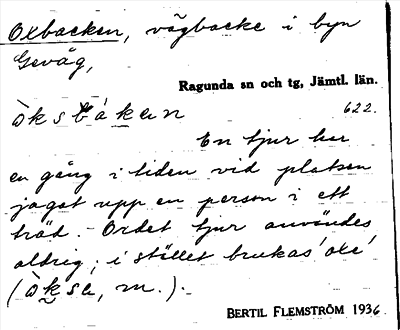 Oxbacken, vägbacke i byn
Gevåg,
Ragunda sn och tg, Jämtl. län.
òksbákan
622.
En tjur har
en gång i tiden vid platsen
jagat upp en person i ett
träd. - Ordet tjur användes
aldrig; i stället brukas 'oxe'
(òksa, m.).
BERTIL FLEMSTRÖM 1936.